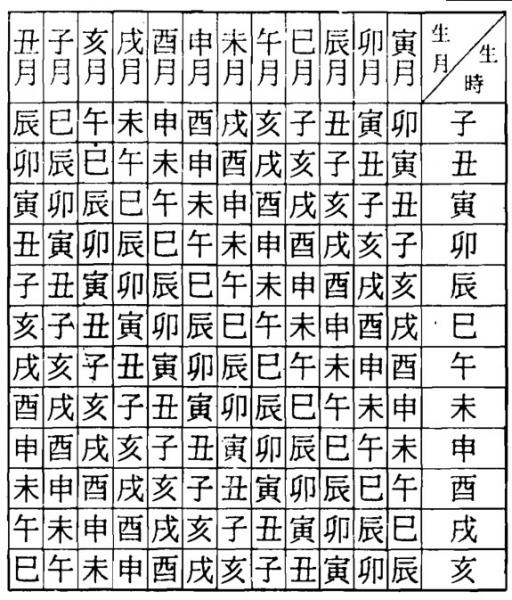 丑月 子月 亥月 戌月 酉月 申月 未月 午月 巳月 辰月 卯月 寅月 生月 生時
辰 巳 午 未 申 酉 戌 亥 子 丑 寅 卯 子
卯 辰 巳 午 未 申 酉 戌 亥 子 丑 寅 丑
寅 卯 辰 巳 午 未 申 酉 戌 亥 子 丑 寅
丑 寅 卯 辰 巳 午 未 申 酉 戌 亥 子 卯
子 丑 寅 卯 辰 巳 午 未 申 酉 戌 亥 辰
亥 子 丑 寅 卯 辰 巳 午 未 申 酉 戌 巳
戌 亥 子 丑 寅 卯 辰 巳 午 未 申 酉 午
酉 戌 亥 子 丑 寅 卯 辰 巳 午 未 申 未
申 酉 戌 亥 子 丑 寅 卯 辰 巳 午 未 申
未 申 酉 戌 亥 子 丑 寅 卯 辰 巳 午 酉
午 未 申 酉 戌 亥 子 丑 寅 卯 辰 巳 戌
巳 午 未 申 酉 戌 亥 子 丑 寅 卯 辰 亥